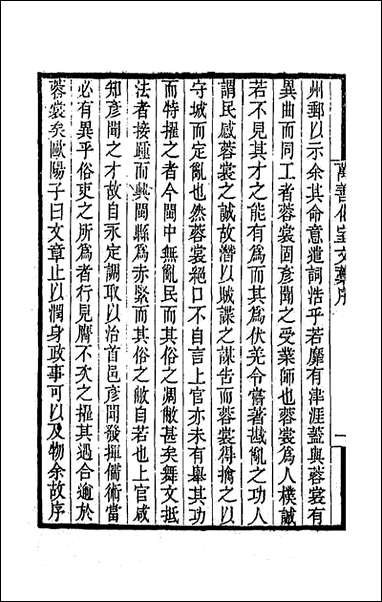 萬善花室文藁序 一
州郵以示余其命意遣詞浩乎若靡有津涯蓋與蓉裳有
異曲而同工者蓉裳固彥聞之受業師也蓉裳爲人樸誠
若不見其才之能有爲而其爲伏羌令嘗著戡亂之功人
謂民感蓉裳之誠故潛以賊諜之謀告而蓉裳得擒之以
守城而定亂也然蓉裳絕口不自言上官亦未有舉其功
而特擢之者今閩中無亂民而其俗之凋敝甚矣舞文抵
法者接踵而興閩縣爲赤緊而其俗之敝自若也上官咸
知彥聞之才故自永定調取以治首邑彥聞發揮儒術當
必有異乎俗吏之所爲者行見膺不次之擢其遇合逾於
蓉裳矣歐陽子曰文章止以潤身政事可以及物余故序